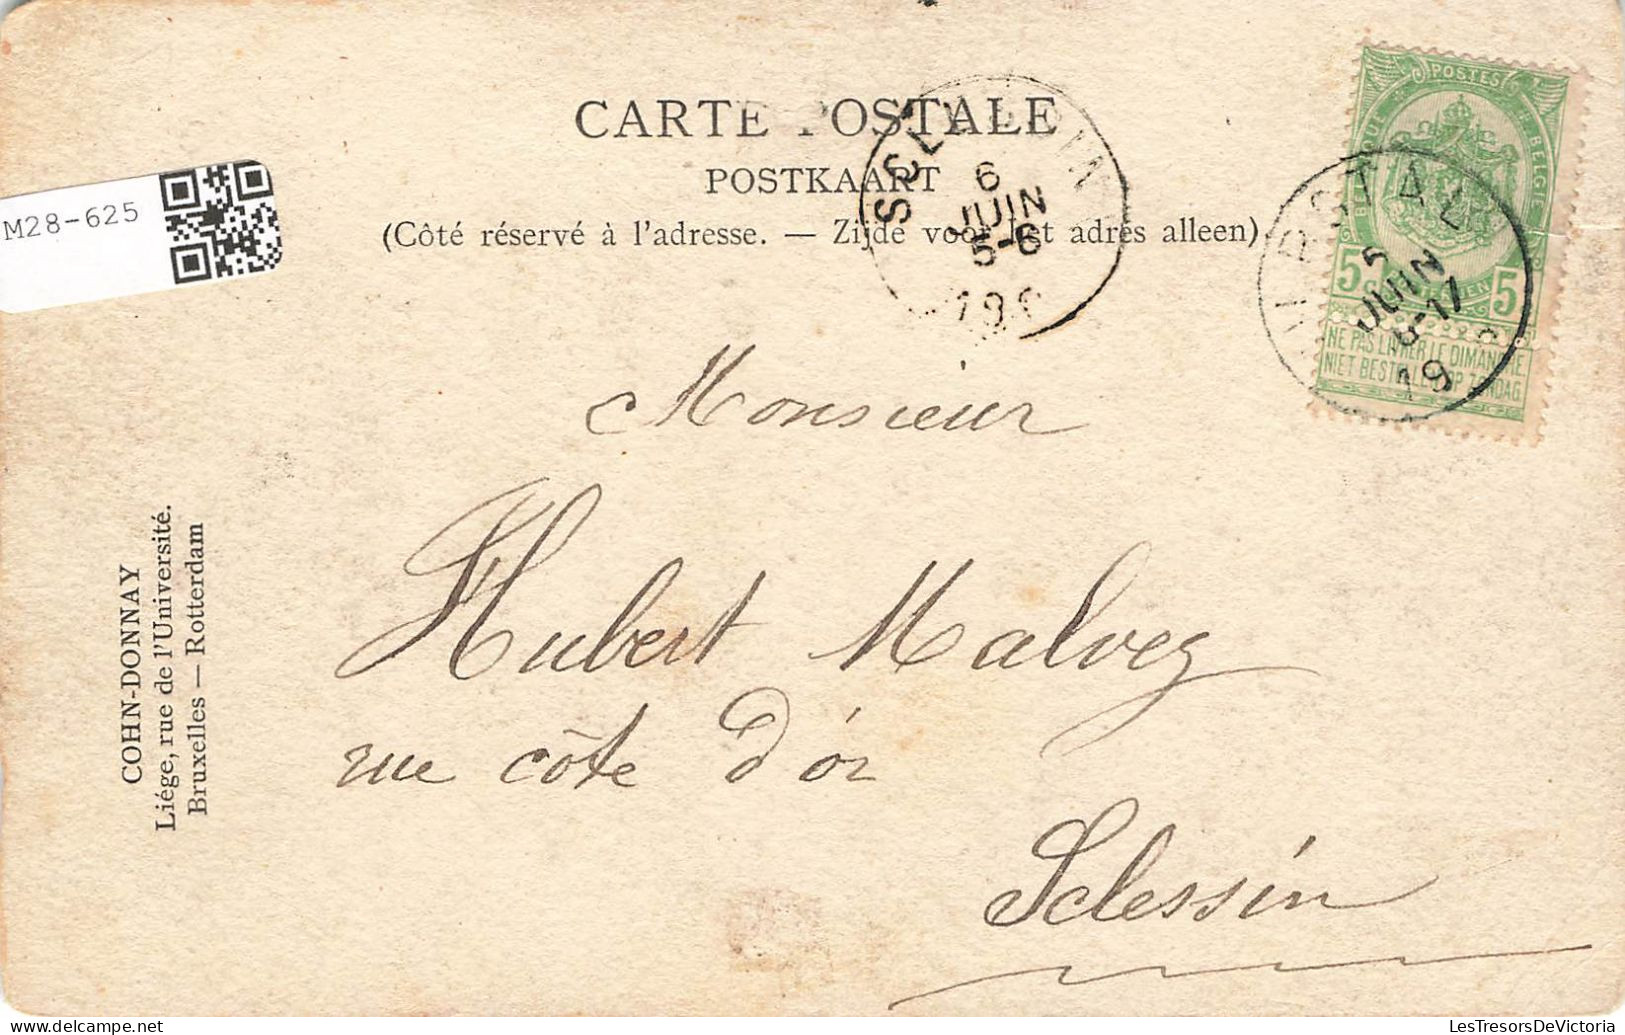 CARTE POSTALE
POSTKAART
(Côté réservé à l'adresse. — Zijde voor het adres alleen)
M28-625
SCLESSIN
6
JUIN
5-6
190
POSTES
BELGIQUE BELGIE
5 5
NE PAS LIVRER LE DIMANCHE
NIET BESTELLEN OP ZONDAG
HERSTAL
5
JUIN
19
Monsieur
Hubert Malvez
rue côte d'or
Sclessin
COHN-DONNAY
Liége, rue de l'Université.
Bruxelles — Rotterdam
LesTresorsDeVictoria
delcampe.net